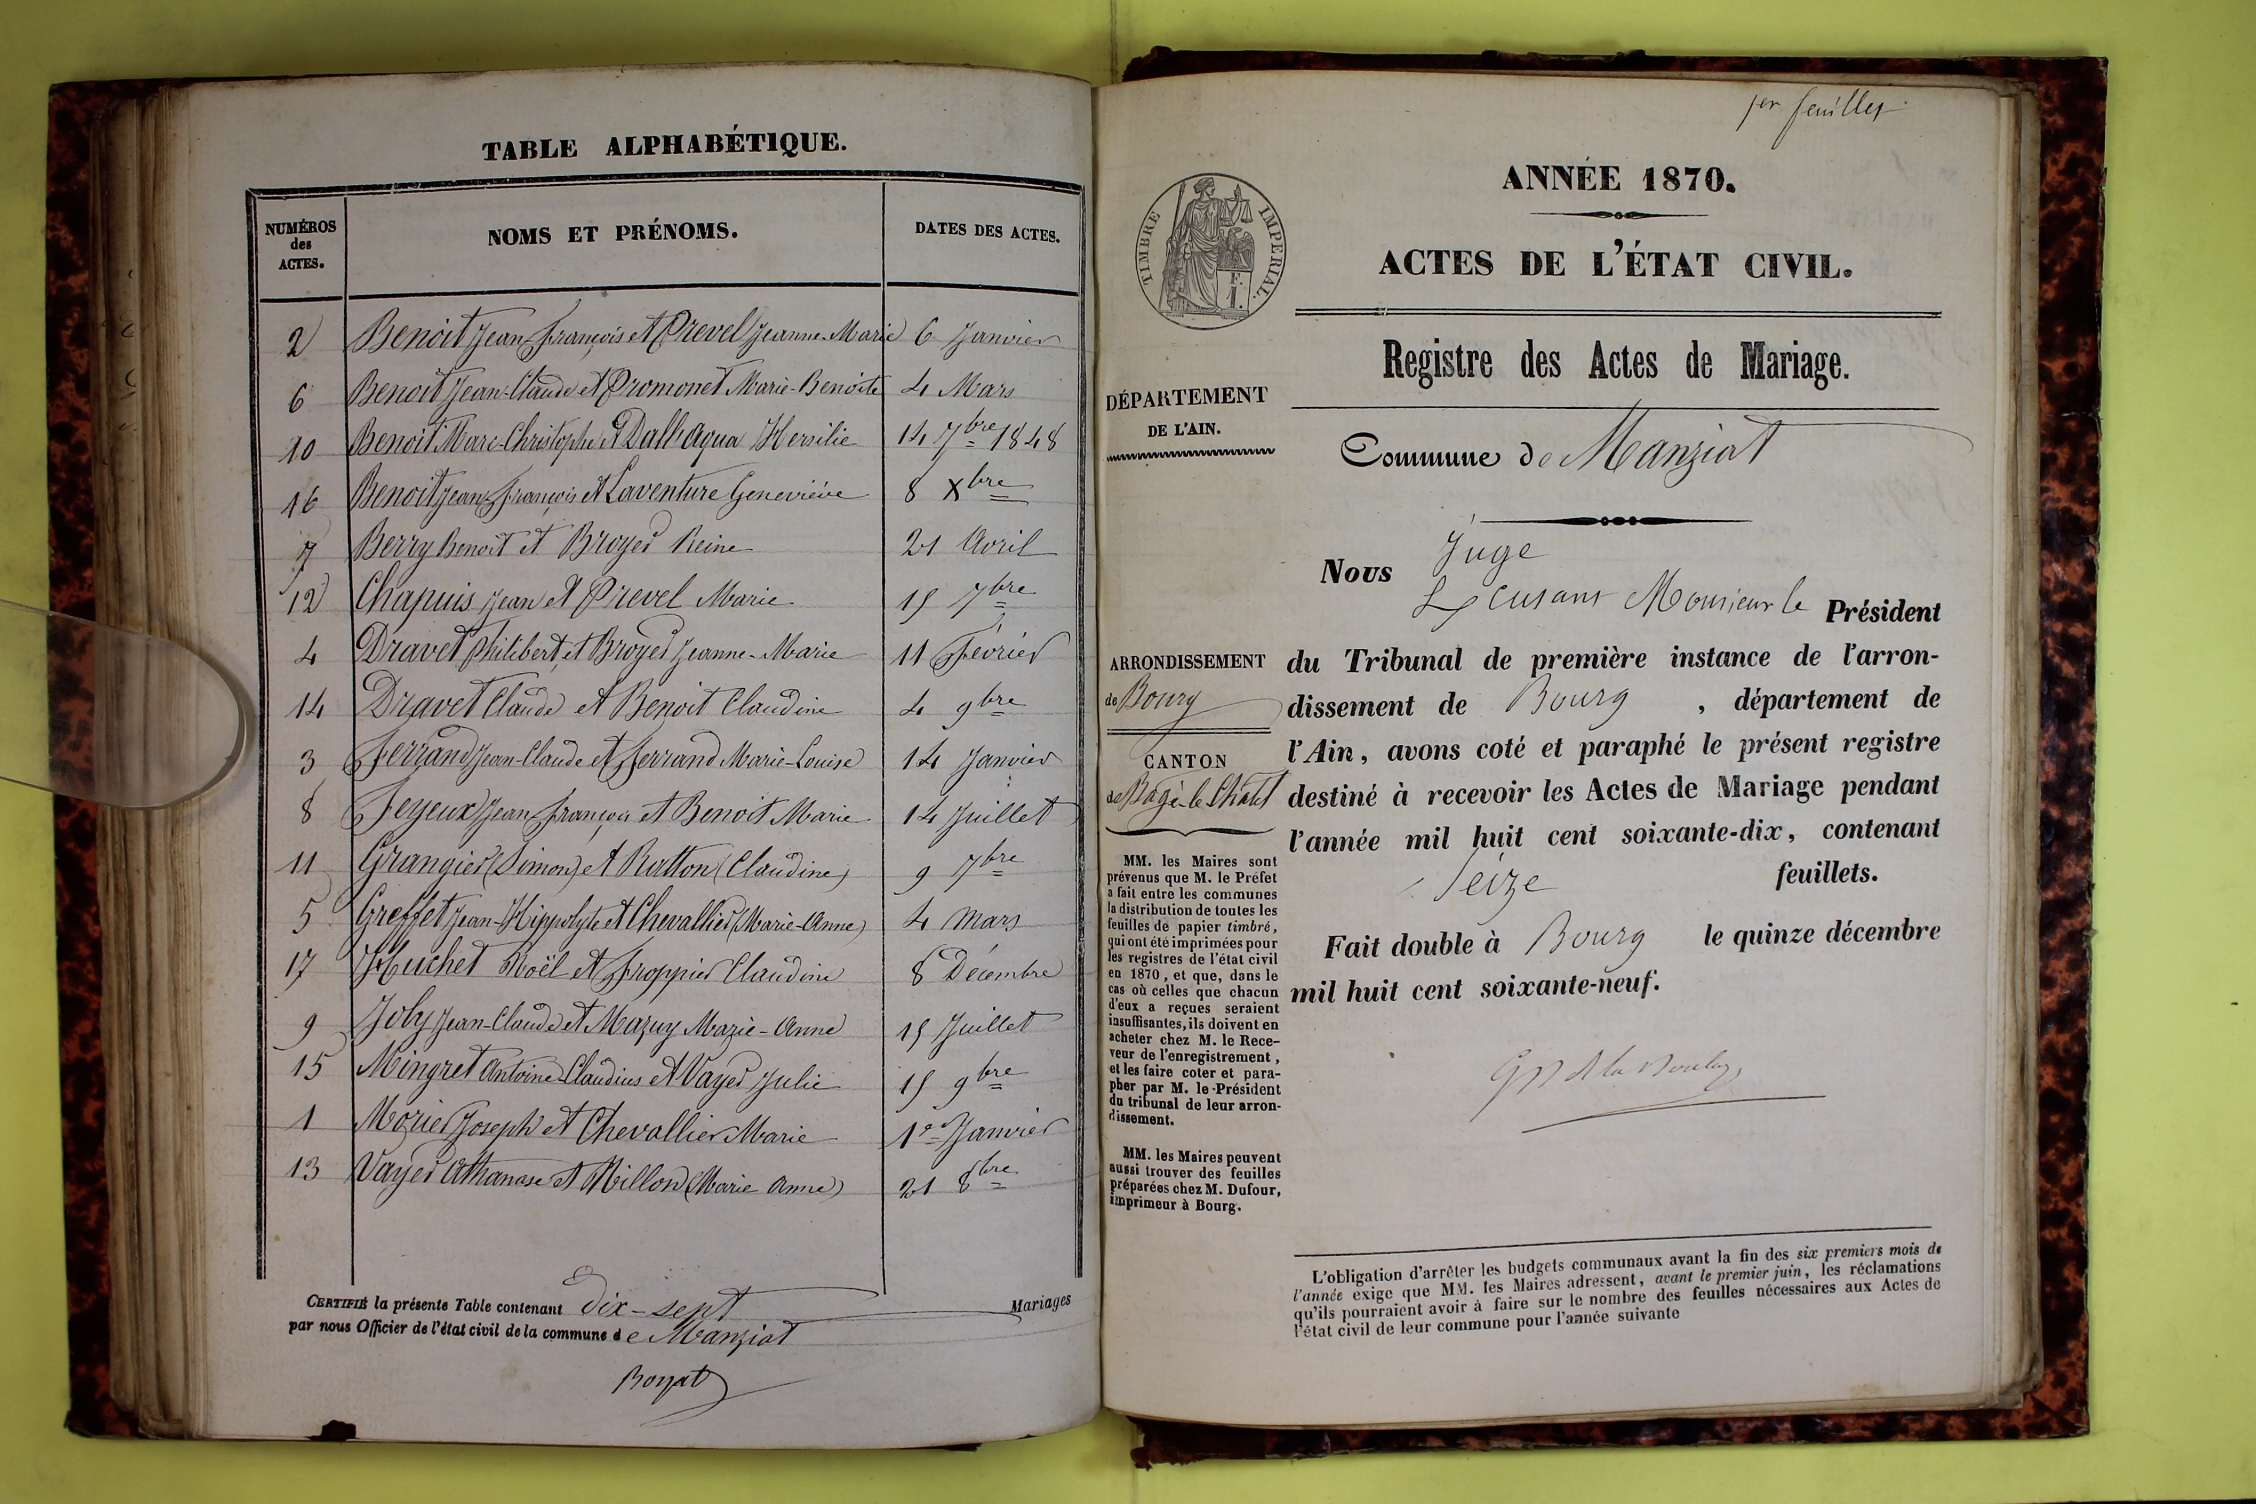 TABLE ALPHABÉTIQUE.
NUMÉROS des ACTES. NOMS ET PRÉNOMS. DATES DES ACTES.
2 Benoit Jean François et Prevel Jeanne-Marie 6 Janvier
6 Benoit Jean-Claude et Promonet Marie-Benoite 4 Mars
10 Benoit Marc-Christophe et Dall'Aqua Hersilie 14 7bre 1848
16 Benoit Jean François et Laventure Geneviève 8 Xbre
7 Berry Benoit et Broyer Reine 21 Avril
12 Chapuis Jean et Prevel Marie 15 7bre
4 Dravet Philibert et Broyer Jeanne-Marie 11 Février
14 Dravet Claude et Benoit Claudine 4 9bre
3 Ferrand Jean-Claude et Ferrand Marie-Louise 14 Janvier
8 Feyeux Jean François et Benoit Marie 14 Juillet
11 Grangier (Simon) et Ratton (Claudine) 9 7bre
5 Greffet Jean-Hippolyte et Chevallier (Marie-Anne) 4 Mars
17 Huchet Noël et Froppier Claudine 8 Décembre
9 Joly Jean-Claude et Mazuy Marie-Anne 15 Juillet
15 Mingret Antoine Claudius et Vayer Julie 15 9bre
1 Morier Joseph et Chevallier Marie 1er Janvier
13 Vayer Athanase et Millon (Marie Anne) 21 8bre
CERTIFIÉ la présente Table contenant dix-sept Mariages
par nous Officier de l'état civil de la commune de Manziat
Boyat
1er feuillet
ANNÉE 1870.
TIMBRE IMPERIAL.
E.
I.
ACTES DE L'ÉTAT CIVIL.
Registre des Actes de Mariage.
DÉPARTEMENT
DE L'AIN.
Commune de Manziat
Juge
Nous
excusant Monsieur le Président
ARRONDISSEMENT
de Bourg
CANTON
de Bagé-le-Châtel
du Tribunal de première instance de l'arron-
dissement de Bourg , département de
l'Ain, avons coté et paraphé le présent registre
destiné à recevoir les Actes de Mariage pendant
l'année mil huit cent soixante-dix, contenant
Seize feuillets.
Fait double à Bourg le quinze décembre
mil huit cent soixante-neuf.
MM. les Maires sont
prévenus que M. le Préfet
a fait entre les communes
la distribution de toutes les
feuilles de papier timbré,
qui ont été imprimées pour
les registres de l'état civil
en 1870, et que, dans le
cas où celles que chacun
d'eux a reçues seraient
insuffisantes, ils doivent en
acheter chez M. le Rece-
veur de l'enregistrement,
et les faire coter et para-
pher par M. le Président
du tribunal de leur arron-
dissement.
MM. les Maires peuvent
aussi trouver des feuilles
préparées chez M. Dufour,
imprimeur à Bourg.
L'obligation d'arrêter les budgets communaux avant la fin des six premiers mois de
l'année exige que MM. les Maires adressent, avant le premier juin, les réclamations
qu'ils pourraient avoir à faire sur le nombre des feuilles nécessaires aux Actes de
l'état civil de leur commune pour l'année suivante